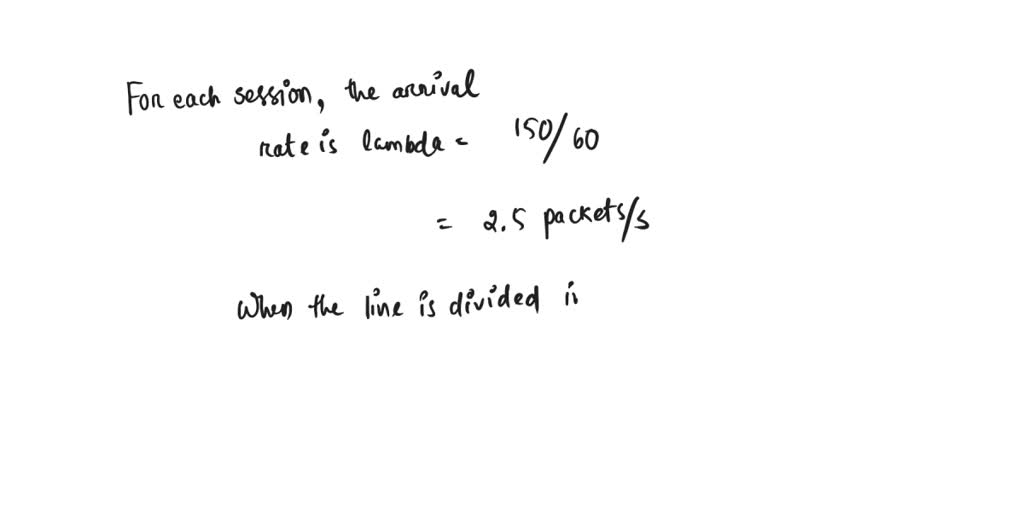 For each session, the arrival
rate is lambda = 150/60
= 2.5 packets/s
When the line is divided i